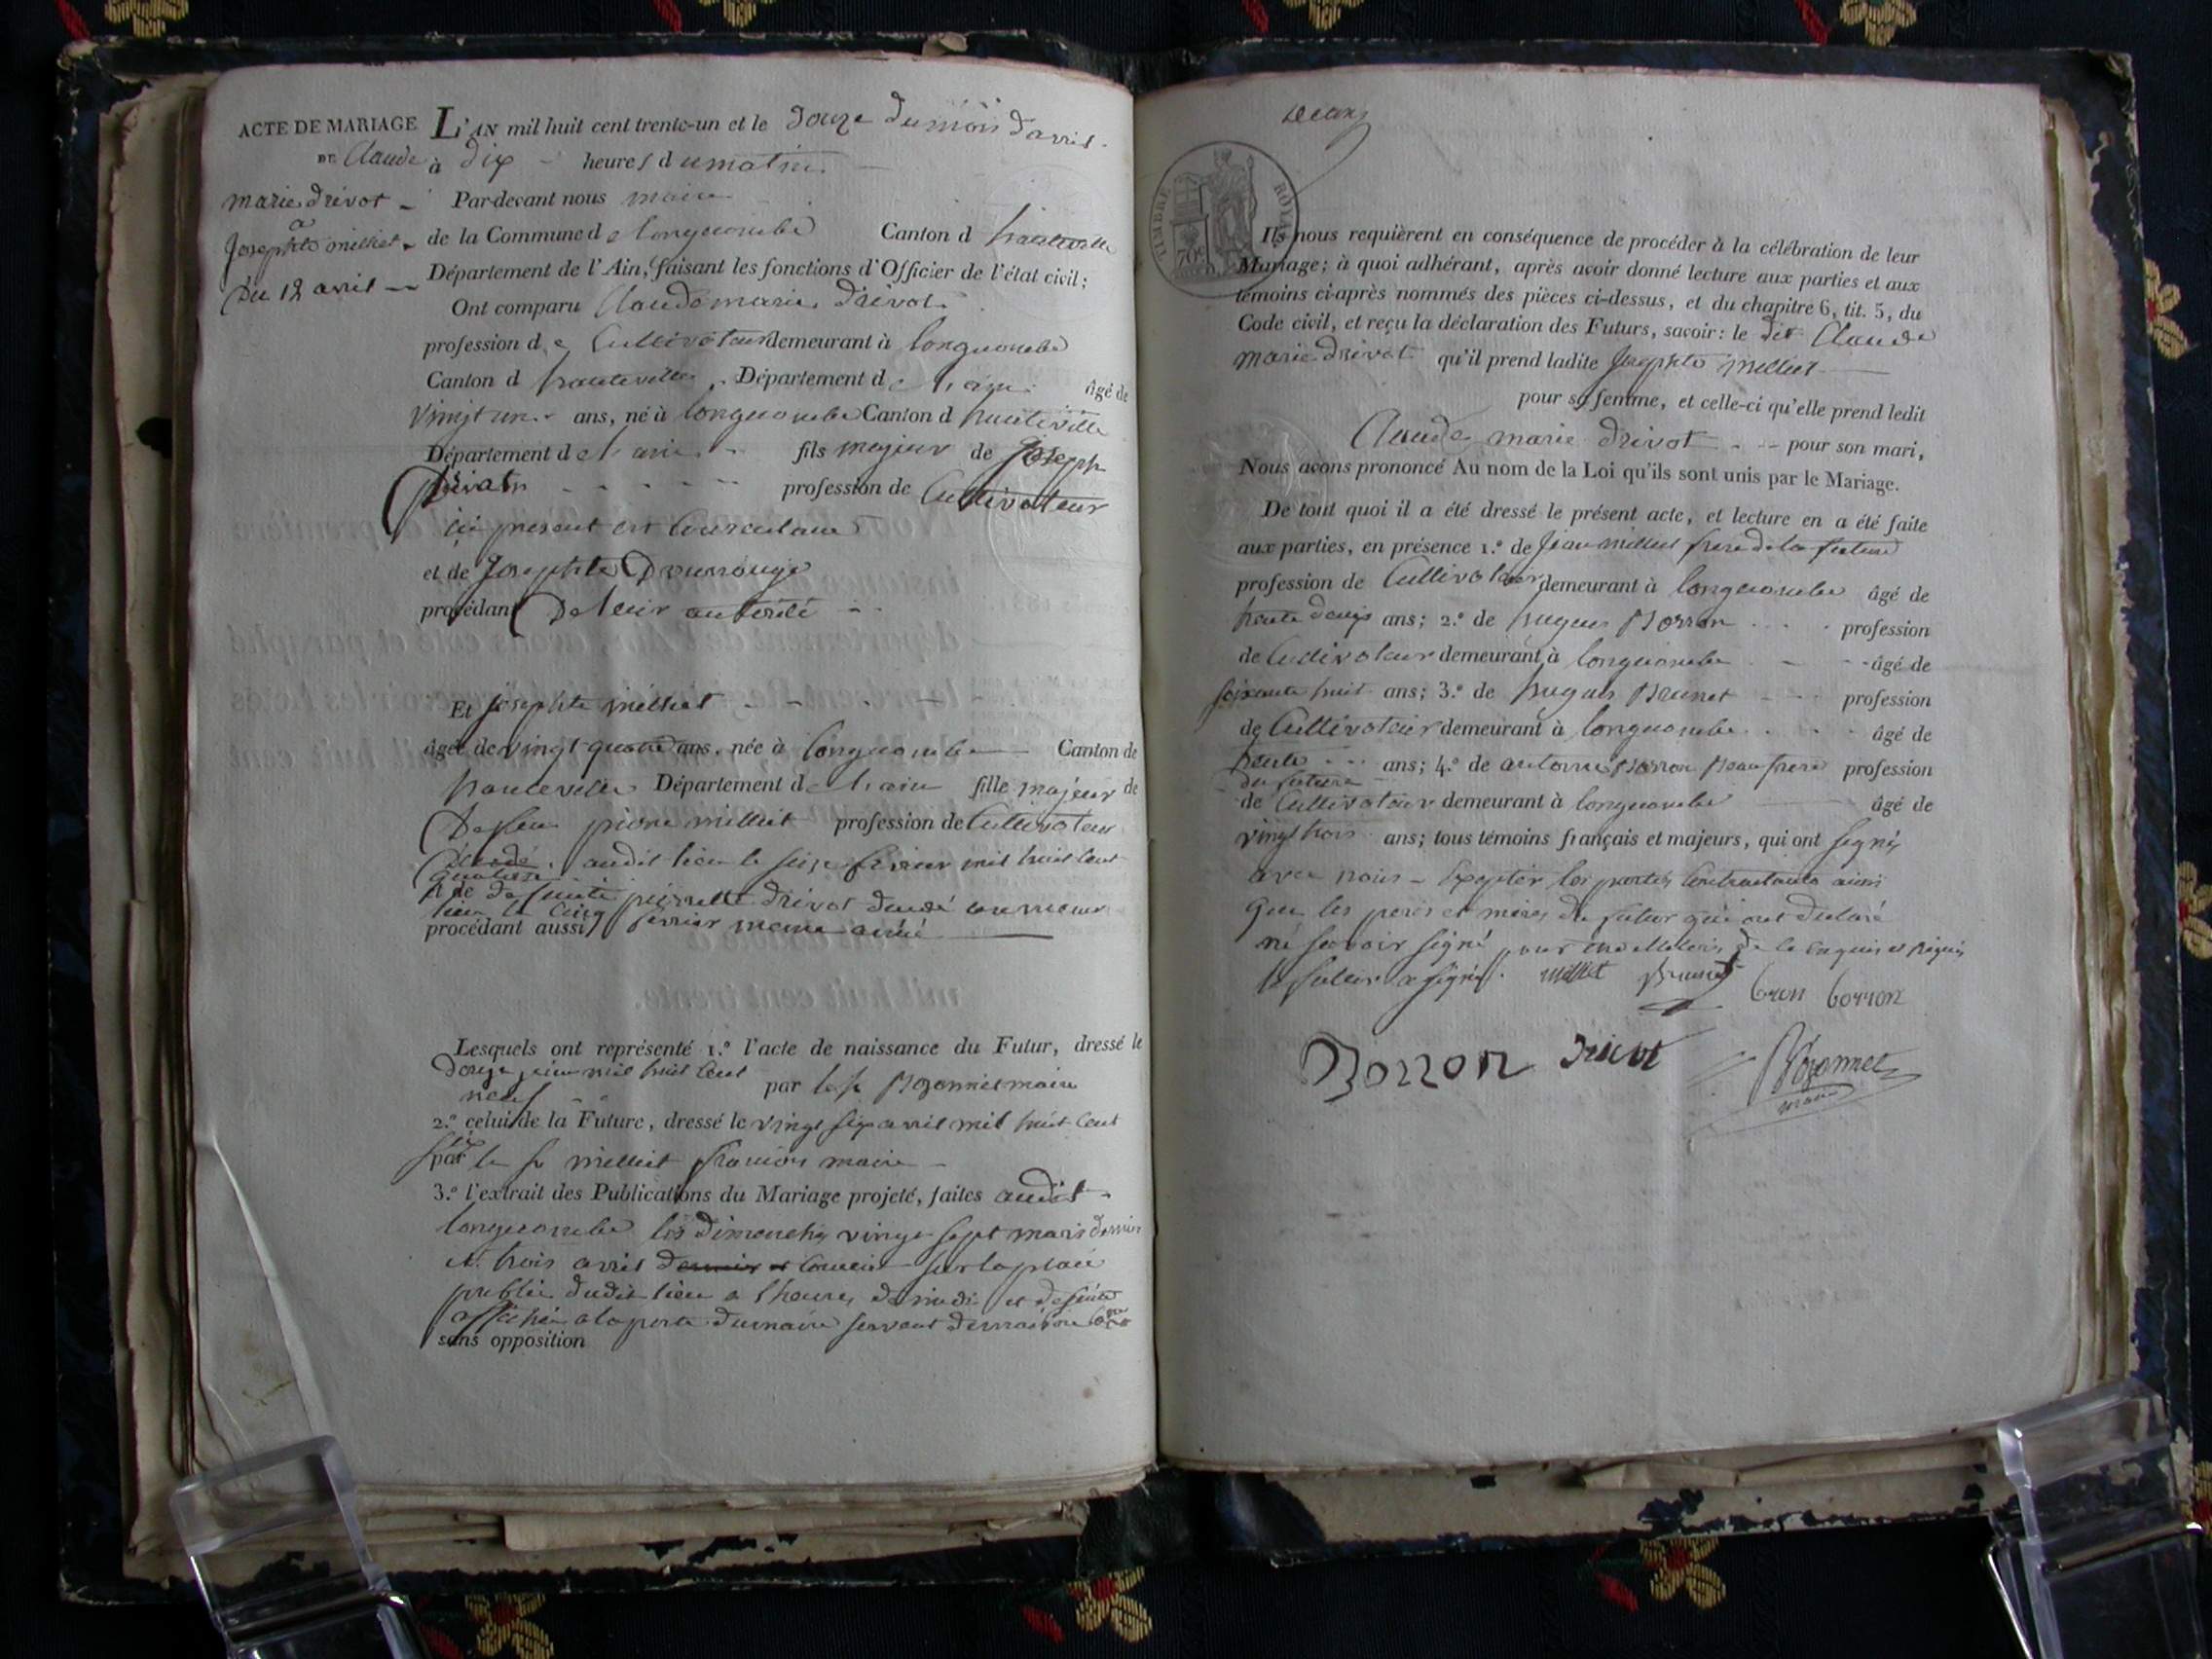 ACTE DE MARIAGE
DE Claude
marie Drivot
a
Josephte milliet
Du 12 avril
L'AN mil huit cent trente-un et le Douze du mois d'avril
à dix heures du matin
Par-devant nous maire
de la Commune de longecombe Canton d hauteville
Département de l'Ain, faisant les fonctions d'Officier de l'état civil;
Ont comparu Claude marie Drivot
profession de Cultivateur demeurant à longecombe
Canton d hauteville, Département de l'ain âgé de
Vingt un ans, né à longecombe Canton d hauteville
Département de l'ain fils majeur de Joseph
Drivat profession de Cultivateur
ici present et Consentant
et de Josephte
procédant De leur autorité
Et Josephte milliet
âgée de vingt quatre ans, née à longecombe Canton de
hauteville Département de l'ain fille majeur de
Defeu pierre milliet profession de Cultivateur
Décédé audit lieu le seize fevrier mil huit cent
quatorze
et de Defunte pierrette Drivot décédé au meme
lieu le Cinq fevrier meme année
procédant aussi
Lesquels ont représenté 1.º l'acte de naissance du Futur, dressé le
Douze juin mil huit Cent
neuf par le Sr maire
2.º celui de la Future, dressé le vingt six avril mil huit Cent
six
par le Sr milliet françois maire
3.º l'extrait des Publications du Mariage projeté, faites audit
longecombe les Dimanches vingt sept mars dernier
et trois avril courant sur la place
public dudit lieu a l'heure de midi et de suite
affiché a la porte du maire servant de maison
sans opposition
TIMBRE ROYAL
70c
Ils nous requièrent en conséquence de procéder à la célébration de leur
Mariage; à quoi adhérant, après avoir donné lecture aux parties et aux
témoins ci-après nommés des pièces ci-dessus, et du chapitre 6, tit. 5, du
Code civil, et reçu la déclaration des Futurs, savoir: le dit Claude
marie Drivot qu'il prend ladite Josephte milliet
pour sa femme, et celle-ci qu'elle prend ledit
Claude marie Drivot pour son mari,
Nous avons prononcé Au nom de la Loi qu'ils sont unis par le Mariage.
De tout quoi il a été dressé le présent acte, et lecture en a été faite
aux parties, en présence 1.º de Jean milliet frere de la future
profession de Cultivateur demeurant à longecombe âgé de
trente deux ans; 2.º de hugues Borron profession
de Cultivateur demeurant à longecombe âgé de
soixante huit ans; 3.º de hugues Brunet profession
de Cultivateur demeurant à longecombe âgé de
trente ans; 4.º de antoine Borron Beaufrere profession
du future
de Cultivateur demeurant à longecombe âgé de
vingt trois ans; tous témoins français et majeurs, qui ont signé
avec nous Excepter les parties Contractante ainsi
que les peres et meres du futur qui ont declaré
ne savoir signé de ce enquis et requis
le futur a signé. millet Brunet
borron
Borron Drivot
maire